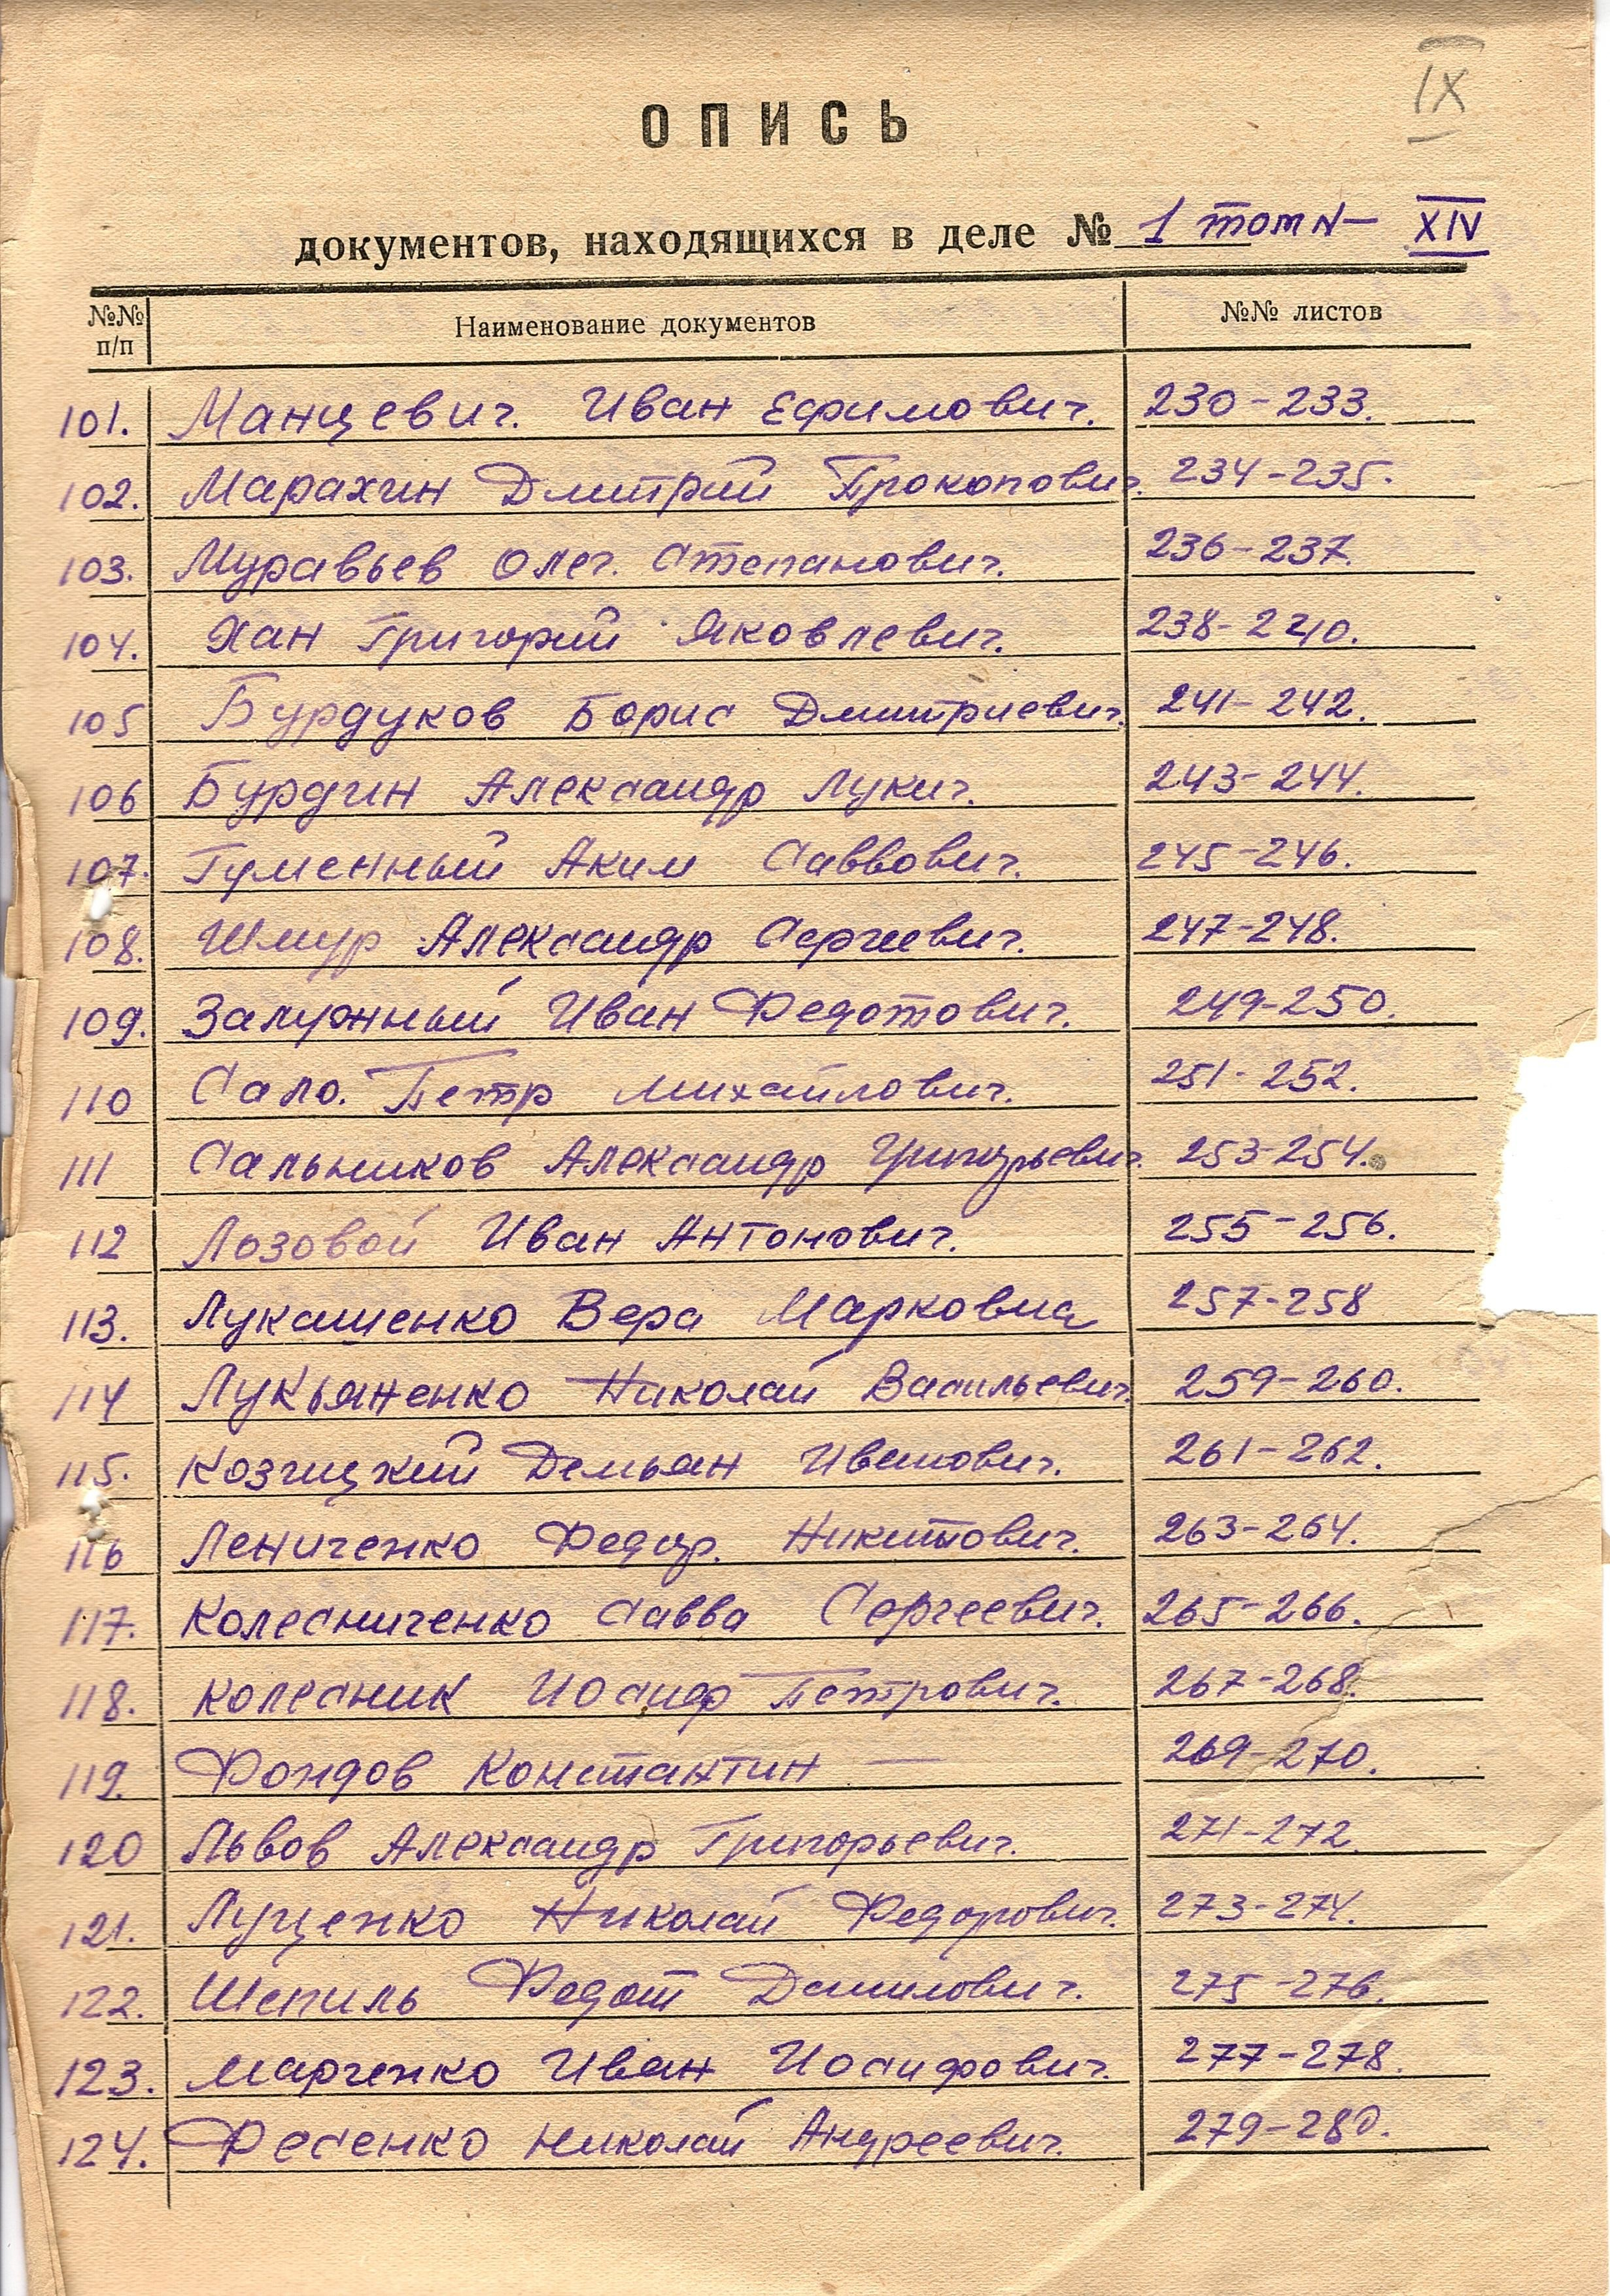 IX
ОПИСЬ
документов, находящихся в деле № 1 том N- XIV
№№ п/п Наименование документов №№ листов
101. Манцевич. Иван Ефимович. 230-233.
102. Марахин Дмитрий Прокопович. 234-235.
103. Муравьев Олег. Степанович. 236-237.
104. Хан Григорий Яковлевич. 238-240.
105 Бурдуков Борис Дмитриевич. 241-242.
106 Бурдин Александр Лукич. 243-244.
107. Гуменный Аким Саввович. 245-246.
108. Шмур Александр Сергеевич. 247-248.
109. Залужный Иван Федотович. 249-250.
110 Сало. Петр Михайлович. 251-252.
111 Сальников Александр Григорьевич. 253-254.
112 Лозовой Иван Антонович. 255-256.
113. Лукашенко Вера Марковна 257-258
114 Лукьяненко Николай Васильевич. 259-260.
115. Козицкий Демьян Иванович. 261-262.
116 Лениченко Федор. Никитович. 263-264.
117. Колесниченко Савва Сергеевич. 265-266.
118. Колесник Иосиф Петрович. 267-268.
119. Фондов Константин — 269-270.
120 Львов Александр Григорьевич. 271-272.
121. Луценко Николай Федорович. 273-274.
122. Шепиль Федот Данилович. 275-276.
123. Марченко Иван Иосифович. 277-278.
124. Фесенко Николай Андреевич. 279-280.